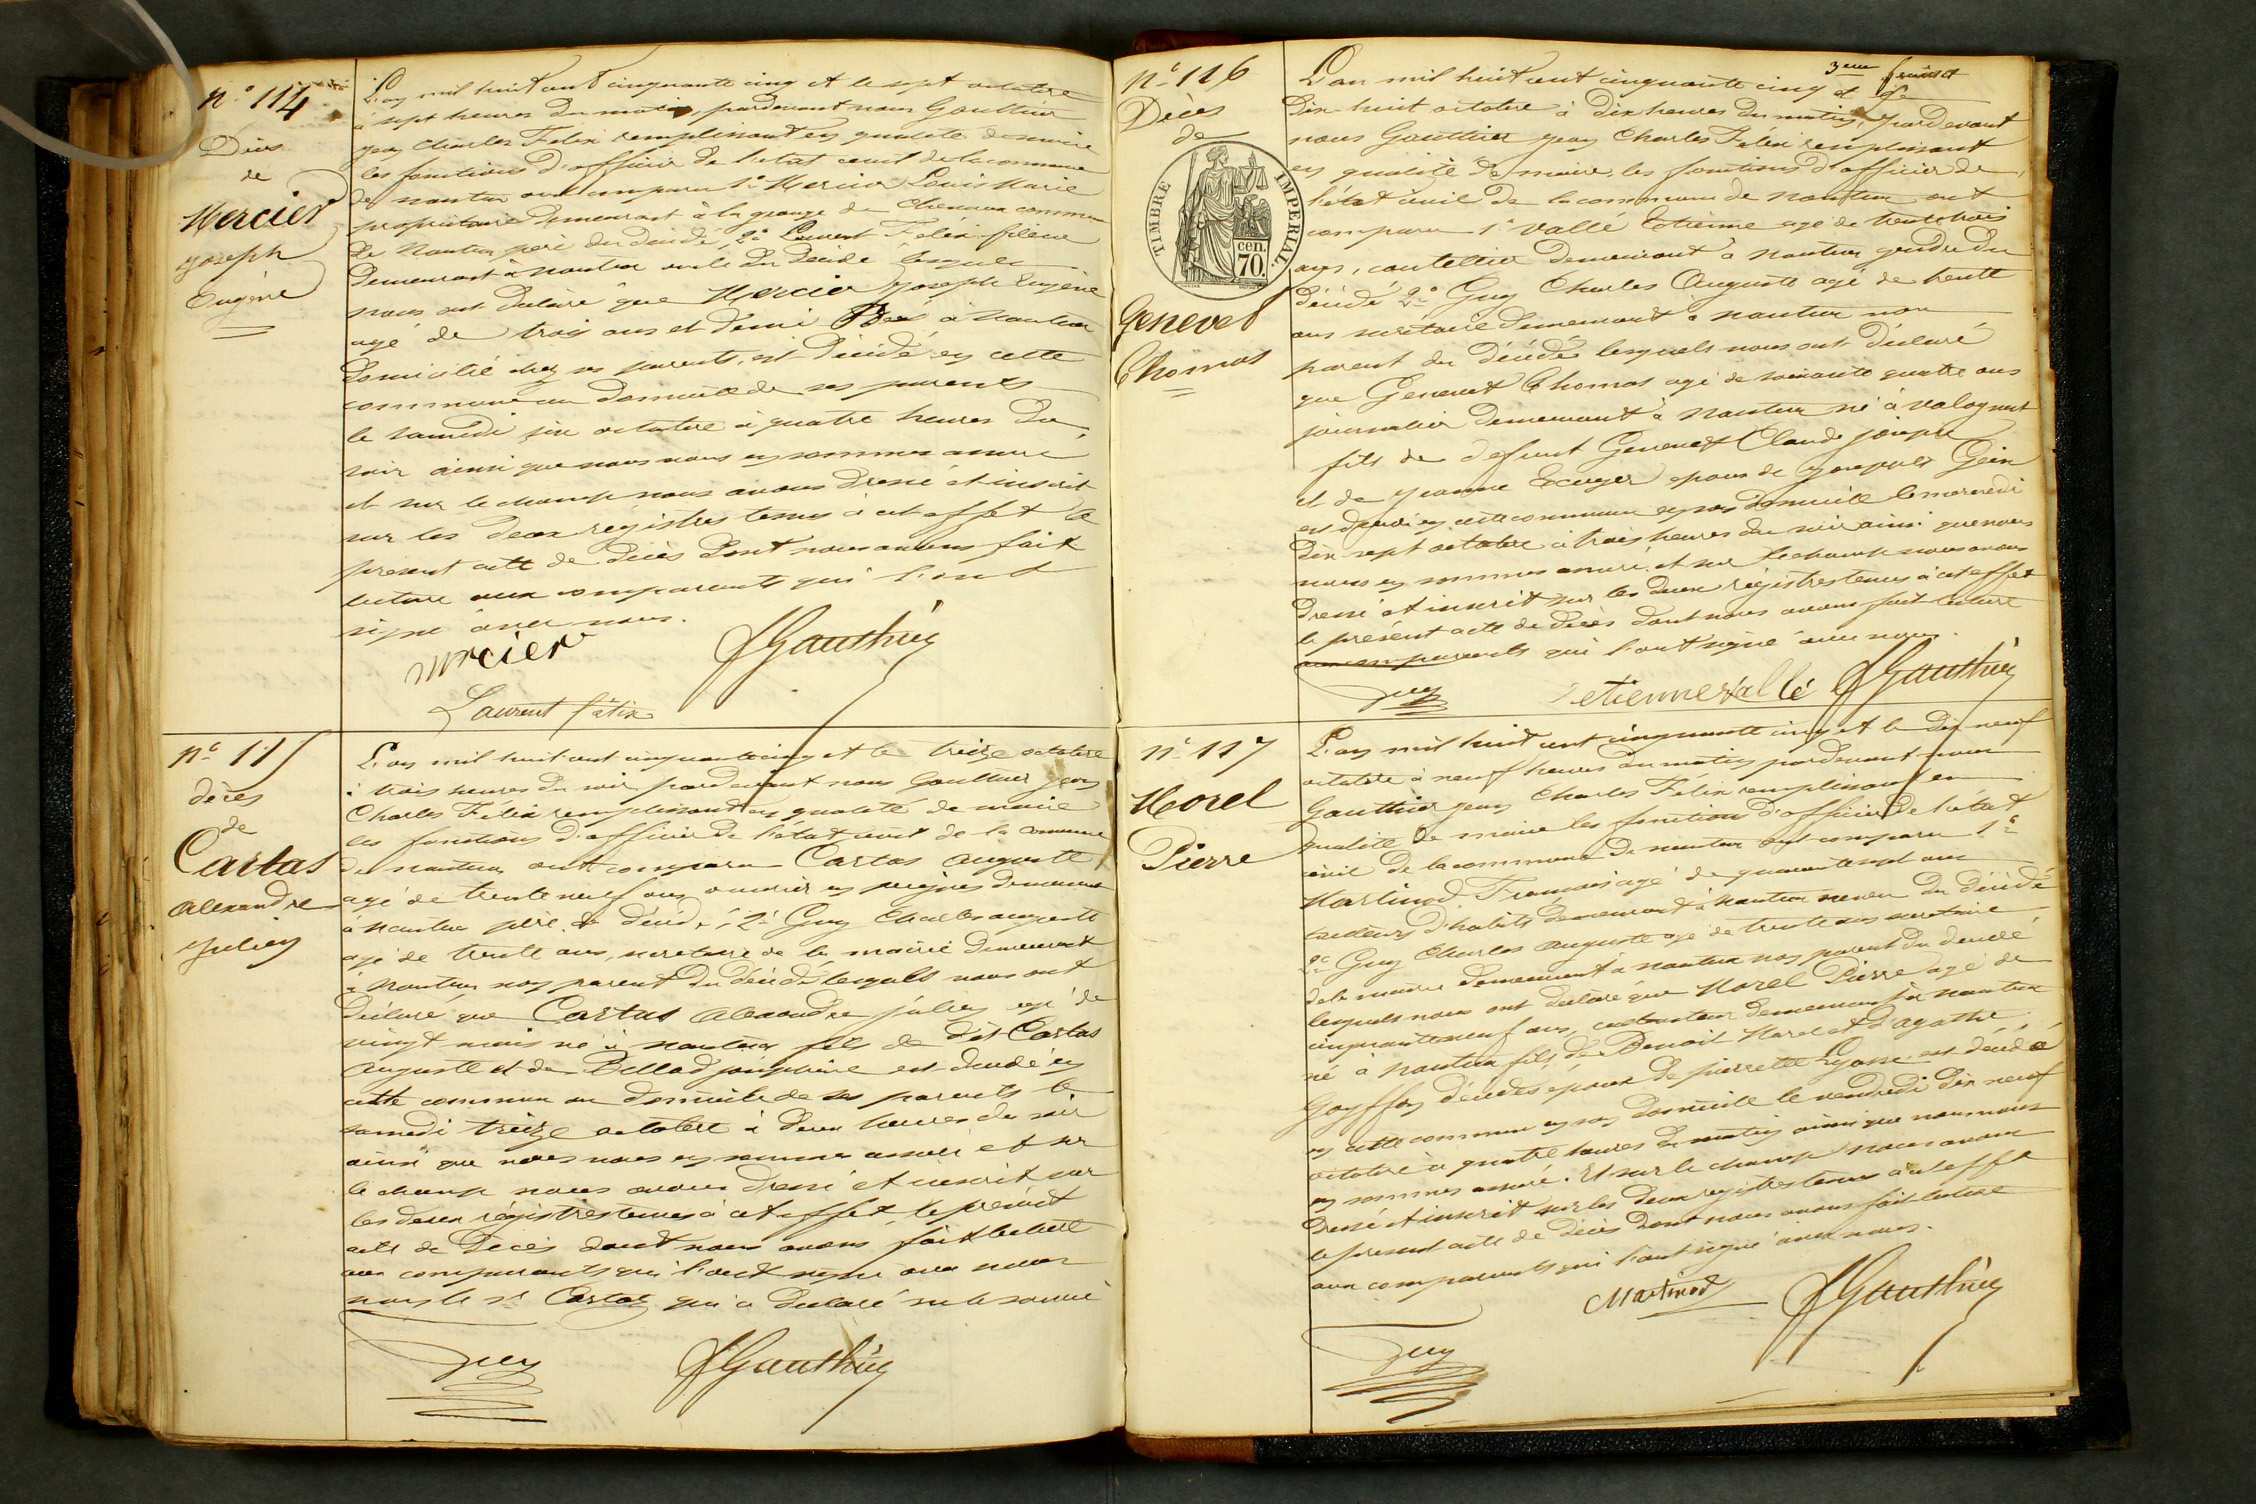 n° 114
Décès
de
Mercier
joseph
Eugène
L'an mil huit cent cinquante cinq et le sept octobre
à sept heures du matin, pardevant nous Gauthier
jean Charles Felix remplissant en qualité de maire
les fonctions d'officier de l'état civil de la commune
de nantua ont comparu 1° Mercier Louis Marie
propriétaire demeurant à la grange de commune
de Nantua père du décédé, 2° Laurent Felix
demeurant à nantua du décédé lesquels
nous ont déclaré que Mercier joseph Eugène
agé de trois ans et demi né à Nantua
domicilié chez ses parents, est décédé en cette
commune au domicile de ses parents
le samedi six octobre à quatre heures du
soir ainsi que nous nous en sommes assuré
et sur le champ nous avons dressé et inscrit
sur les deux régistres tenus à cet effet le
présent acte de décès dont nous avons fait
lecture aux comparants qui l'ont
signé avec nous.
mrcier
JGauthier
Laurent félix
n° 115
décès
de
Cartas
alexandre
julien
L'an mil huit cent cinquante cinq et le treize octobre
à trois heures du soir pardevant nous Gauthier jean
Charles Felix remplissant en qualité de maire
les fonctions d'officier de l'état civil de la commune
de nantua ont comparu Cartas auguste
agé de trente neuf ans ouvrier en peignes demeurant
à nantua père du décédé, 2° Guy Charles auguste
agé de trente ans, secretaire de la mairie demeurant
à Nantua non parent du décédé lesquels nous ont
déclaré que Cartas alexandre julien agé de
vingt mois né à nantua fils de dit Cartas
auguste et de Bellod joséphine est décédé en
cette commune au domicile de ses parents le
samedi treize octobre à deux heures du soir
ainsi que nous nous en sommes assuré et sur
le champ nous avons dressé et inscrit sur
les deux régistres tenus à cet effet le présent
acte de décès dont nous avons fait lecture
aux comparants qui l'ont signé avec nous
non le s.r Cartas qui a déclaré ne le savoir
Guy
JGauthier
n° 116
Décès
de
TIMBRE IMPERIAL
cen. 70.
Genevet
Thomas
3eme feuillet
L'an mil huit cent cinquante cinq et le
dix huit octobre à dix heures du matin, pardevant
nous Gauthier jean Charles Félix remplissant
en qualité de maire, les fonctions d'officier de
l'état civil de la commune de nantua ont
comparu 1° Vallé Etienne agé de trente trois
ans, coutellier demeurant à nantua gendre du
décédé 2° Guy Charles Auguste agé de trente
ans secretaire demeurant à nantua non
parent du décédé lesquels nous ont déclaré
que Genevet Thomas agé de soixante quatre ans
journalier demeurant à nantua né à valognat
fils de defunt Genevet Claude joseph
et de jeanne Ecuyer époux de Gein
est décédé en cette commune en son domicile le mercredi
dix sept octobre à trois heures du soir ainsi que nous
nous en sommes assuré, et sur le champ nous avons
dressé et inscrit sur les deux régistres tenus à cet effet
le présent acte de décès dont nous avons fait lecture
aux comparants qui l'ont signé avec nous.
Guy
etienne vallé
JGauthier
n° 117
Morel
Pierre
L'an mil huit cent cinquante cinq et le dix neuf
octobre à neuf heures du matin pardevant nous
Gauthier jean Charles Félix remplissant en
qualité de maire les fonctions d'officier de l'état
civil de la commune de nantua ont comparu 1°
Martinod François agé de quarante sept ans
tailleur d'habits demeurant à nantua neveu du décédé
2° Guy Charles auguste agé de trente ans secretaire
de la mairie demeurant à nantua non parent du décédé
lesquels nous ont déclaré que Morel Pierre agé de
cinquante neuf ans, demeurant à nantua
né à nantua fils de Benoit Morel et d'agathe
Goyffon décédés époux de pierrette est décédé
en cette commune en son domicile le vendredi dix neuf
octobre à quatre heures du matin ainsi que nous nous
en sommes assuré. Et sur le champ nous avons
dressé et inscrit sur les deux registres tenus à cet effet
le présent acte de décès dont nous avons fait lecture
aux comparants qui l'ont signé avec nous.
Martinod
JGauthier
Guy